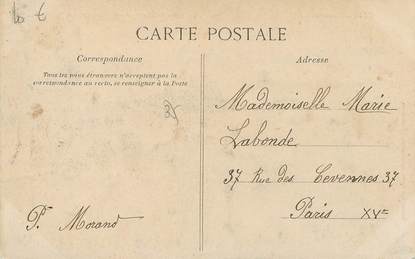 10 €
CARTE POSTALE
Correspondance
Tous les pays étrangers n'acceptent pas la
correspondance au recto, se renseigner à la Poste
Adresse
Mademoiselle Marie
Labonde
37 Rue des Cevennes 37
Paris XVe
P. Morand